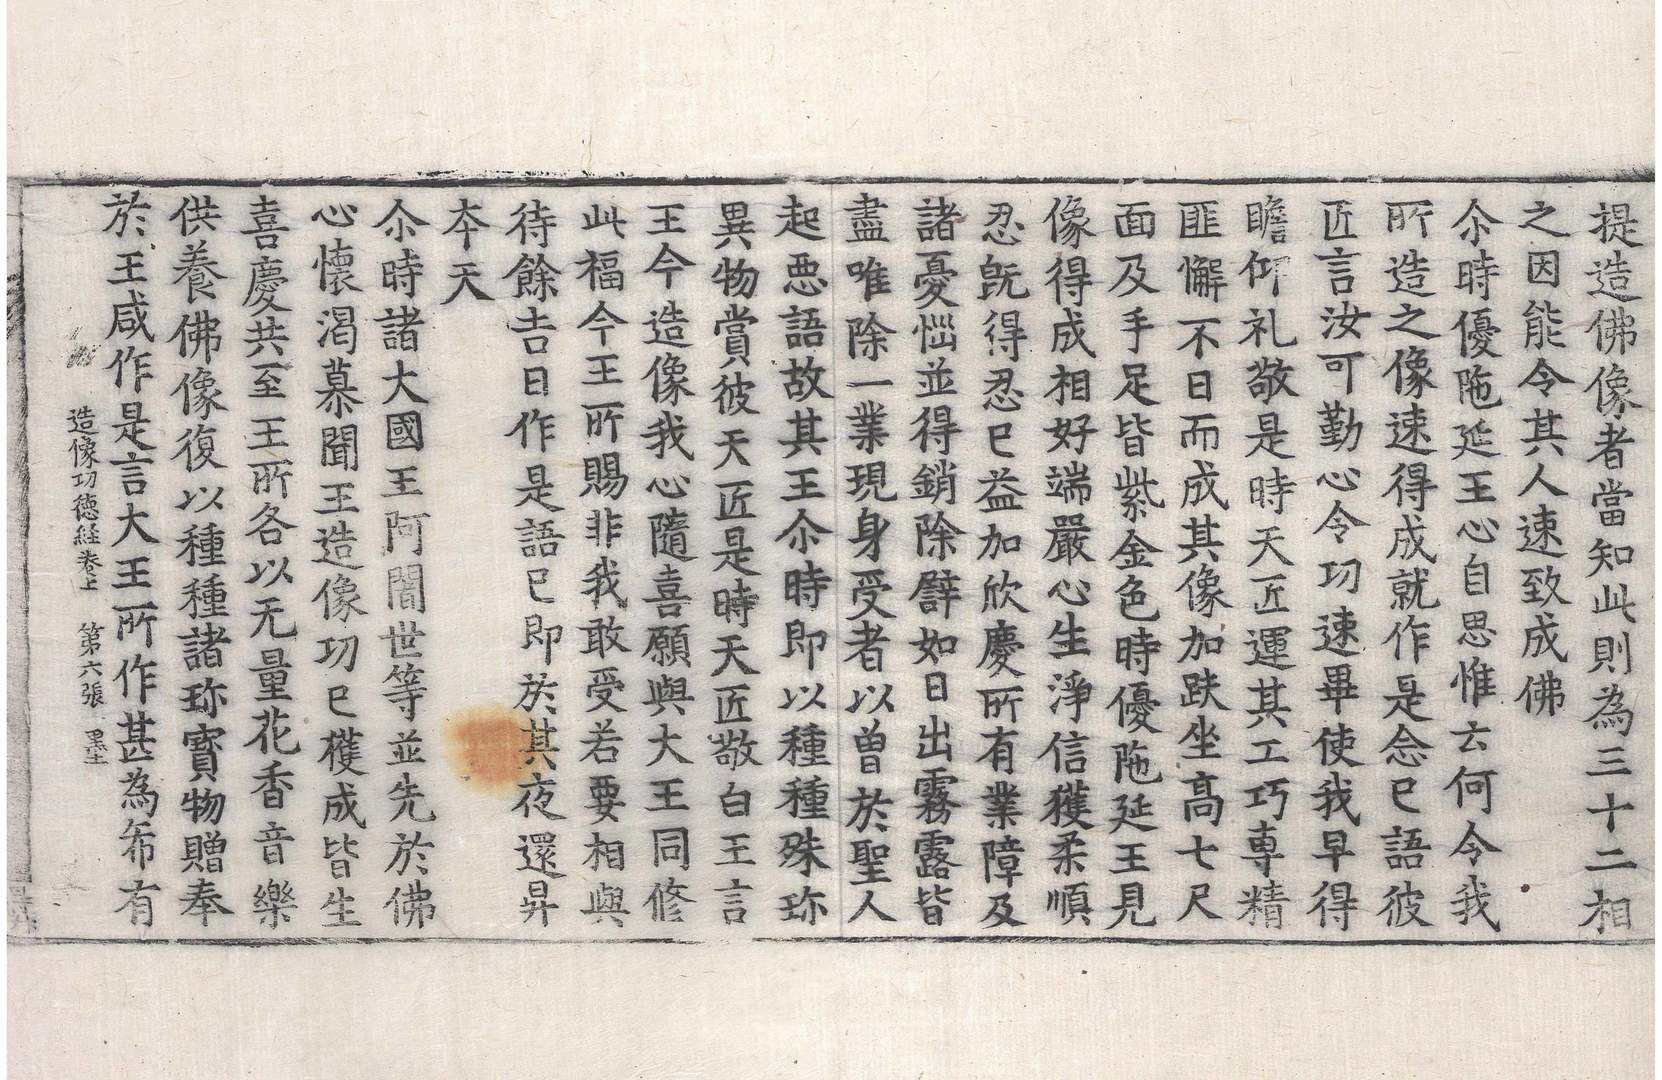 提造佛像者當知此則為三十二相
之因能令其人速致成佛
尒時優陁延王心自思惟云何令我
所造之像速得成就作是念已語彼
匠言汝可勤心令功速畢使我早得
瞻仰礼敬是時天匠運其工巧專精
匪懈不日而成其像加趺坐高七尺
面及手足皆紫金色時優陁延王見
像得成相好端嚴心生淨信獲柔順
忍旣得忍已益加欣慶所有業障及
諸憂惱並得銷除譬如日出霧露皆
盡唯除一業現身受者以曾於聖人
起惡語故其王尒時即以種種殊珎
異物賞彼天匠是時天匠敬白王言
王今造像我心隨喜願與大王同修
此福今王所賜非我敢受若要相與
待餘吉日作是語已即於其夜還昇
本天
尒時諸大國王阿闍世等並先於佛
心懷渴慕聞王造像功已獲成皆生
喜慶共至王所各以无量花香音樂
供養佛像復以種種諸珎寶物贈奉
於王咸作是言大王所作甚為希有
造像功德経卷上　第六張　墨